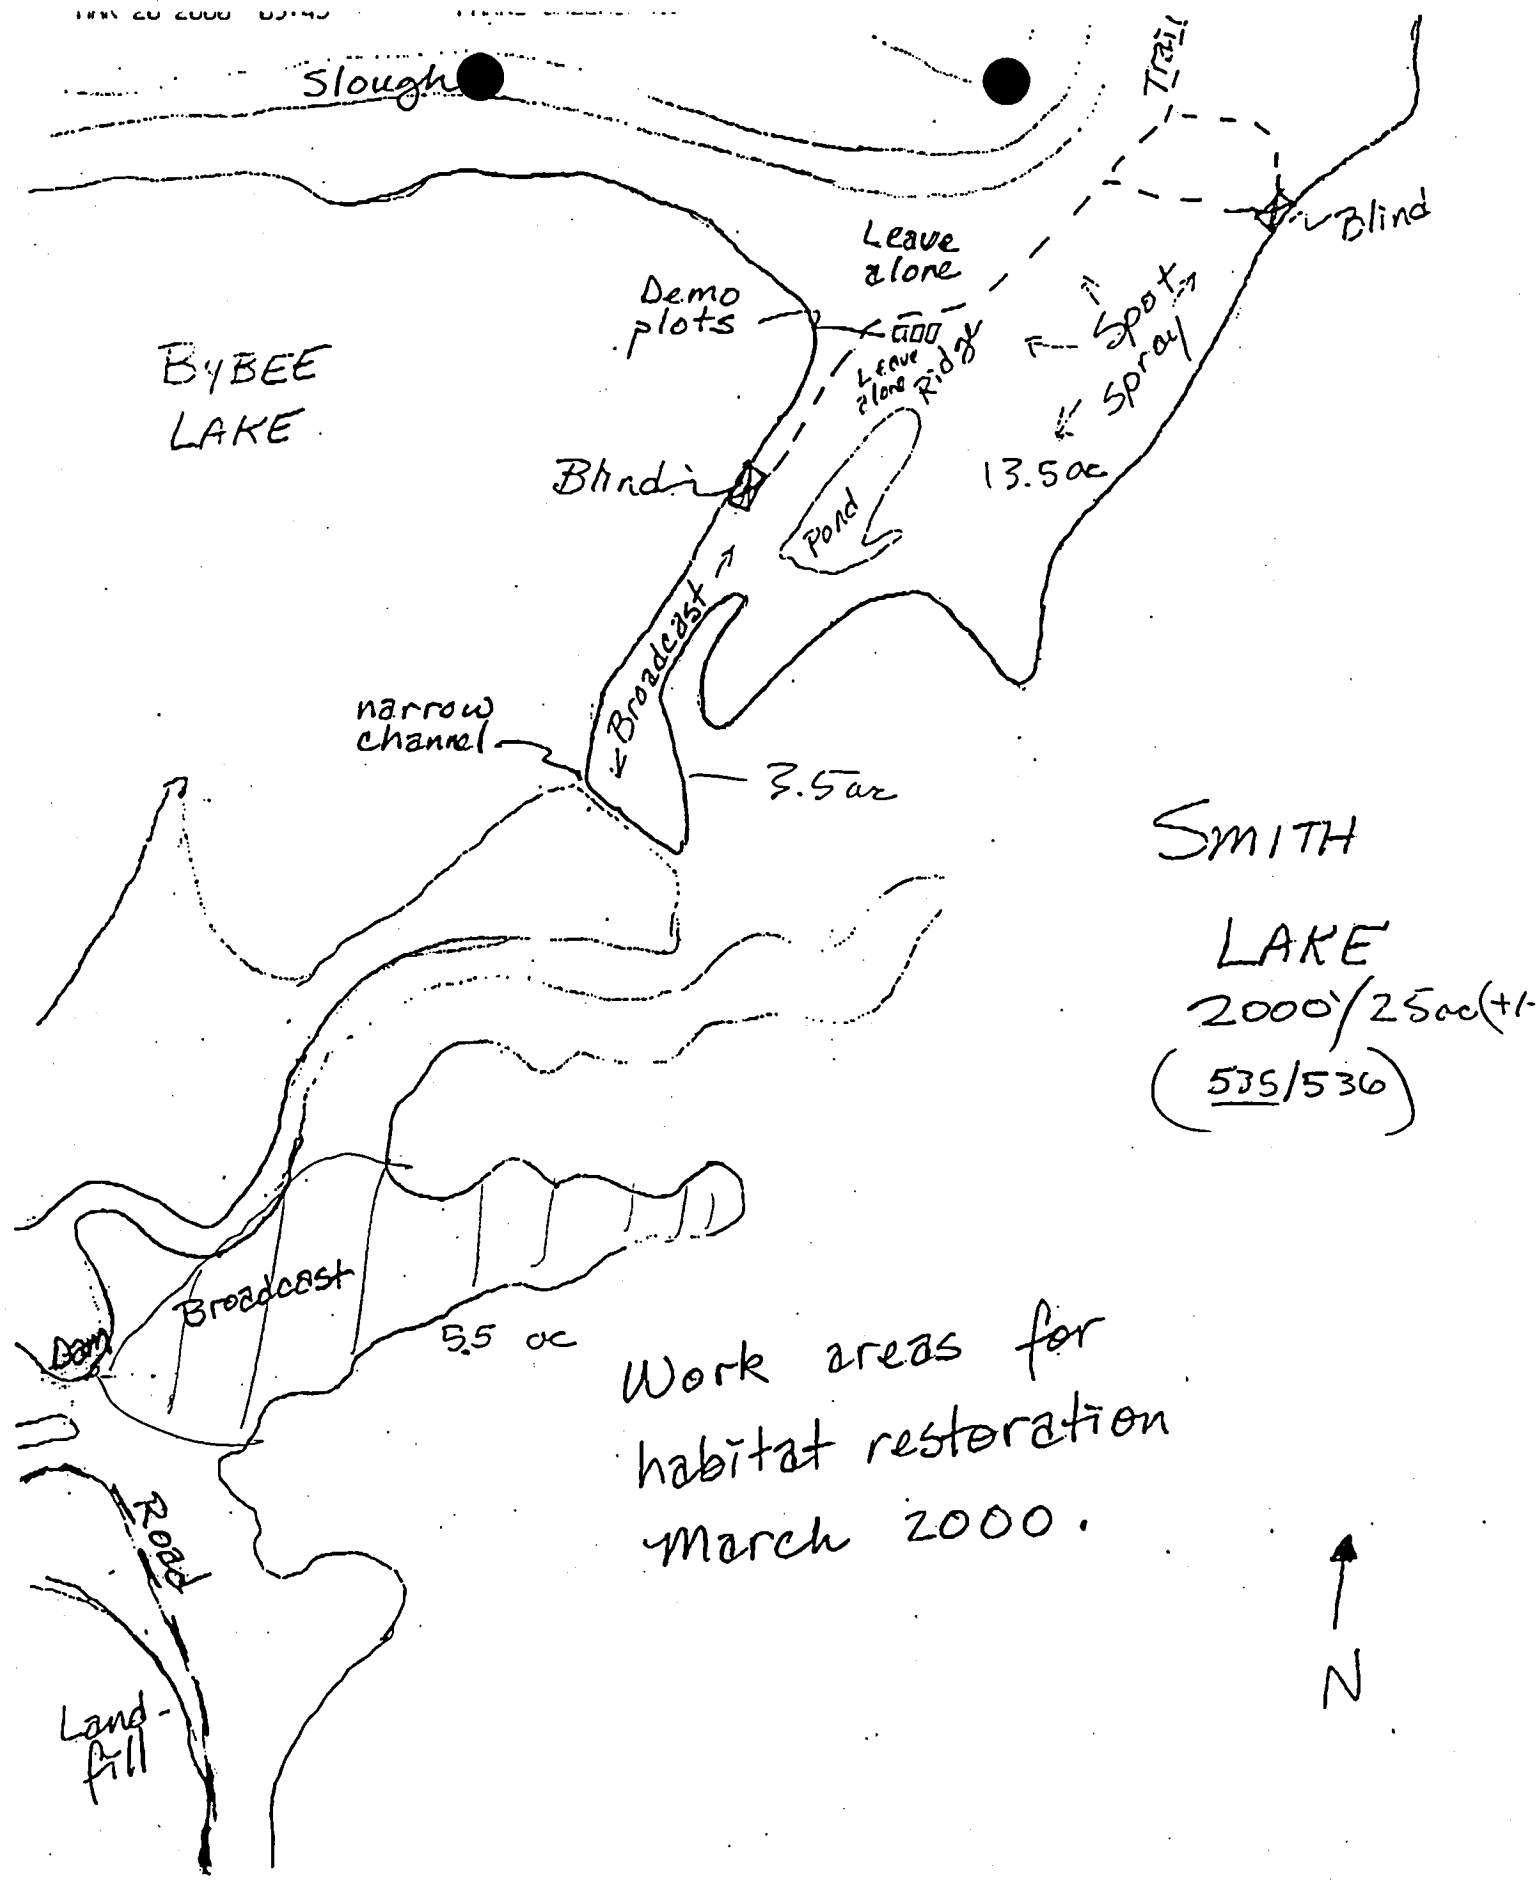 Slough
Trail
Blind
Leave
alone
Demo
plots
Leave
alone
Ridge
Spot
Spray
BYBEE
LAKE
13.5 ac
Blind
Pond
Broadcast
narrow
channel
3.5 ac
SMITH
LAKE
2000'/25ac(+/-
(535/536)
Broadcast
Dam
5.5 ac
Work areas for
habitat restoration
March 2000.
Road
N
Land-
fill